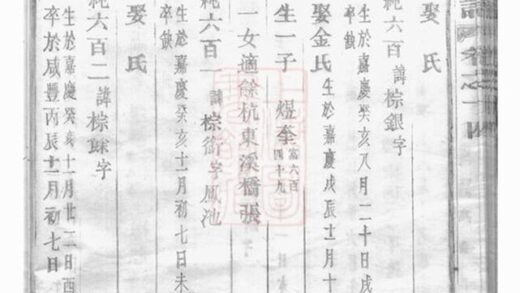 娶 氏
純六百 諱棕銀字
生於嘉慶癸亥八月二十日戌
卒缺
娶金氏 生於嘉慶戊辰十二月十
卒缺
生一子 煜奎 富六百四十九
一女適餘杭東溪橋張
純六百一 諱棕衔字鳳池
生於嘉慶癸亥十二月初七日未
卒缺
娶 氏
純六百二 諱棕 字
生於嘉慶癸亥十一月廿二日酉
卒於咸豐丙辰十二月初七日